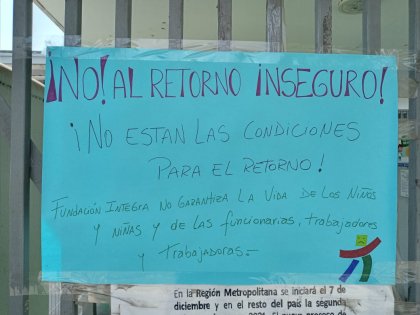 ¡NO! AL RETORNO INSEGURO!
¡NO ESTAN LAS CONDICIONES
PARA EL RETORNO!
FUNDACIÓN INTEGRA NO GARANTIZA LA VIDA DE LOS NIÑOS
Y NIÑAS Y DE LAS funcionarias, trabajadores
y trabajadoras.-
En la Región Metropolitana se iniciará el 7 de
diciembre y en el resto del país la segunda